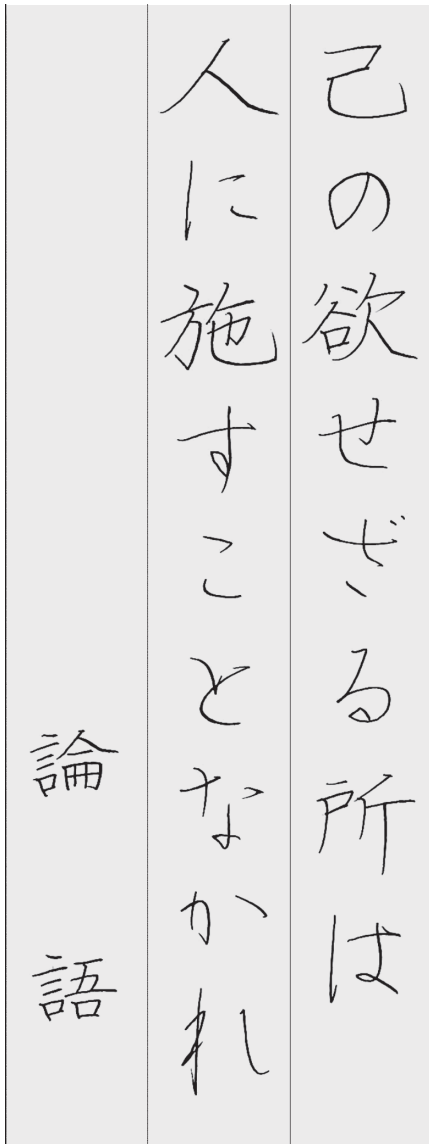 己の欲せざる所は
人に施すことなかれ
論語